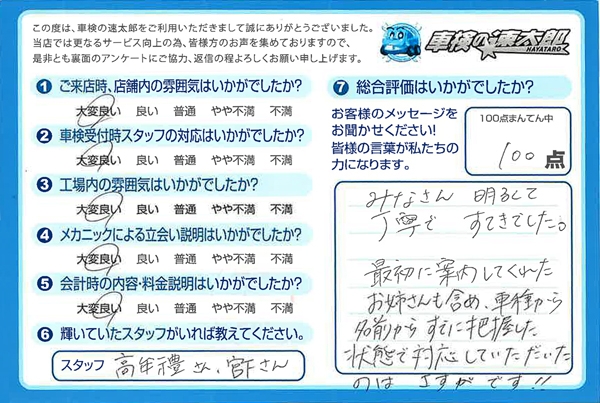 この度は、車検の速太郎をご利用いただきまして誠にありがとうございました。
当店では更なるサービス向上の為、皆様方のお声を集めておりますので、
是非とも裏面のアンケートにご協力、返信の程よろしくお願い申し上げます。
車検の速太郎
HAYATARO
1 ご来店時、店舗内の雰囲気はいかがでしたか?
大変良い 良い 普通 やや不満 不満
2 車検受付時スタッフの対応はいかがでしたか?
大変良い 良い 普通 やや不満 不満
3 工場内の雰囲気はいかがでしたか?
大変良い 良い 普通 やや不満 不満
4 メカニックによる立会い説明はいかがでしたか?
大変良い 良い 普通 やや不満 不満
5 会計時の内容・料金説明はいかがでしたか?
大変良い 良い 普通 やや不満 不満
6 輝いていたスタッフがいれば教えてください。
スタッフ 高年禮さん、宮下さん
7 総合評価はいかがでしたか?
お客様のメッセージを
お聞かせください!
皆様の言葉が私たちの
力になります。
100点まんてん中
100 点
みなさん 明るくて
丁寧で すてきでした。
最初に案内してくれた
お姉さんも含め、車種から
名前から すでに把握した
状態で対応していただいた
のは さすが です!!